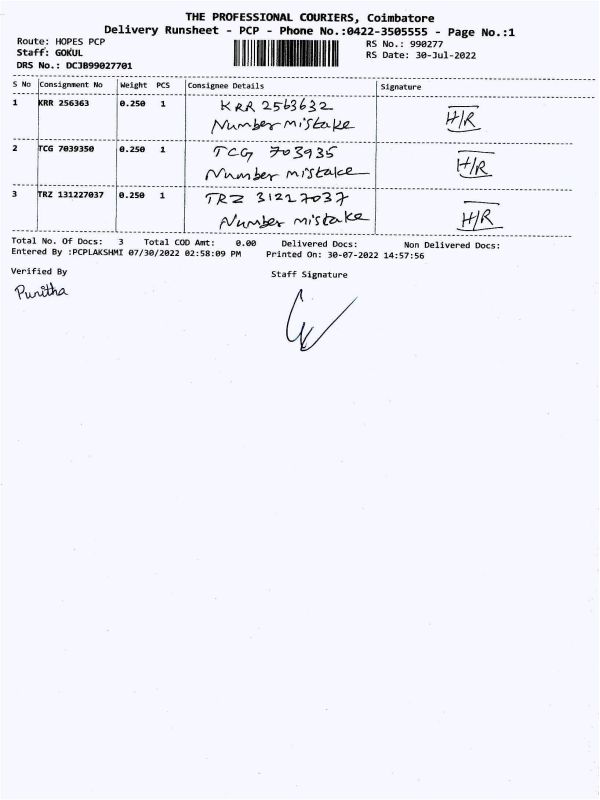 THE PROFESSIONAL COURIERS, Coimbatore
Delivery Runsheet - PCP - Phone No.:0422-3505555 - Page No.:1
Route: HOPES PCP
Staff: GOKUL
DRS No.: DCJB99027701
RS No.: 990277
RS Date: 30-Jul-2022
S No Consignment No Weight PCS Consignee Details Signature
1 KRR 256363 0.250 1 KRR 2563632 H/R
Number mistake
2 TCG 7039350 0.250 1 TCG 703935 H/R
Number mistake
3 TRZ 131227037 0.250 1 TRZ 31227037 H/R
Number mistake
Total No. Of Docs: 3 Total COD Amt: 0.00 Delivered Docs: Non Delivered Docs:
Entered By :PCPLAKSHMI 07/30/2022 02:58:09 PM Printed On: 30-07-2022 14:57:56
Verified By Staff Signature
Punitha